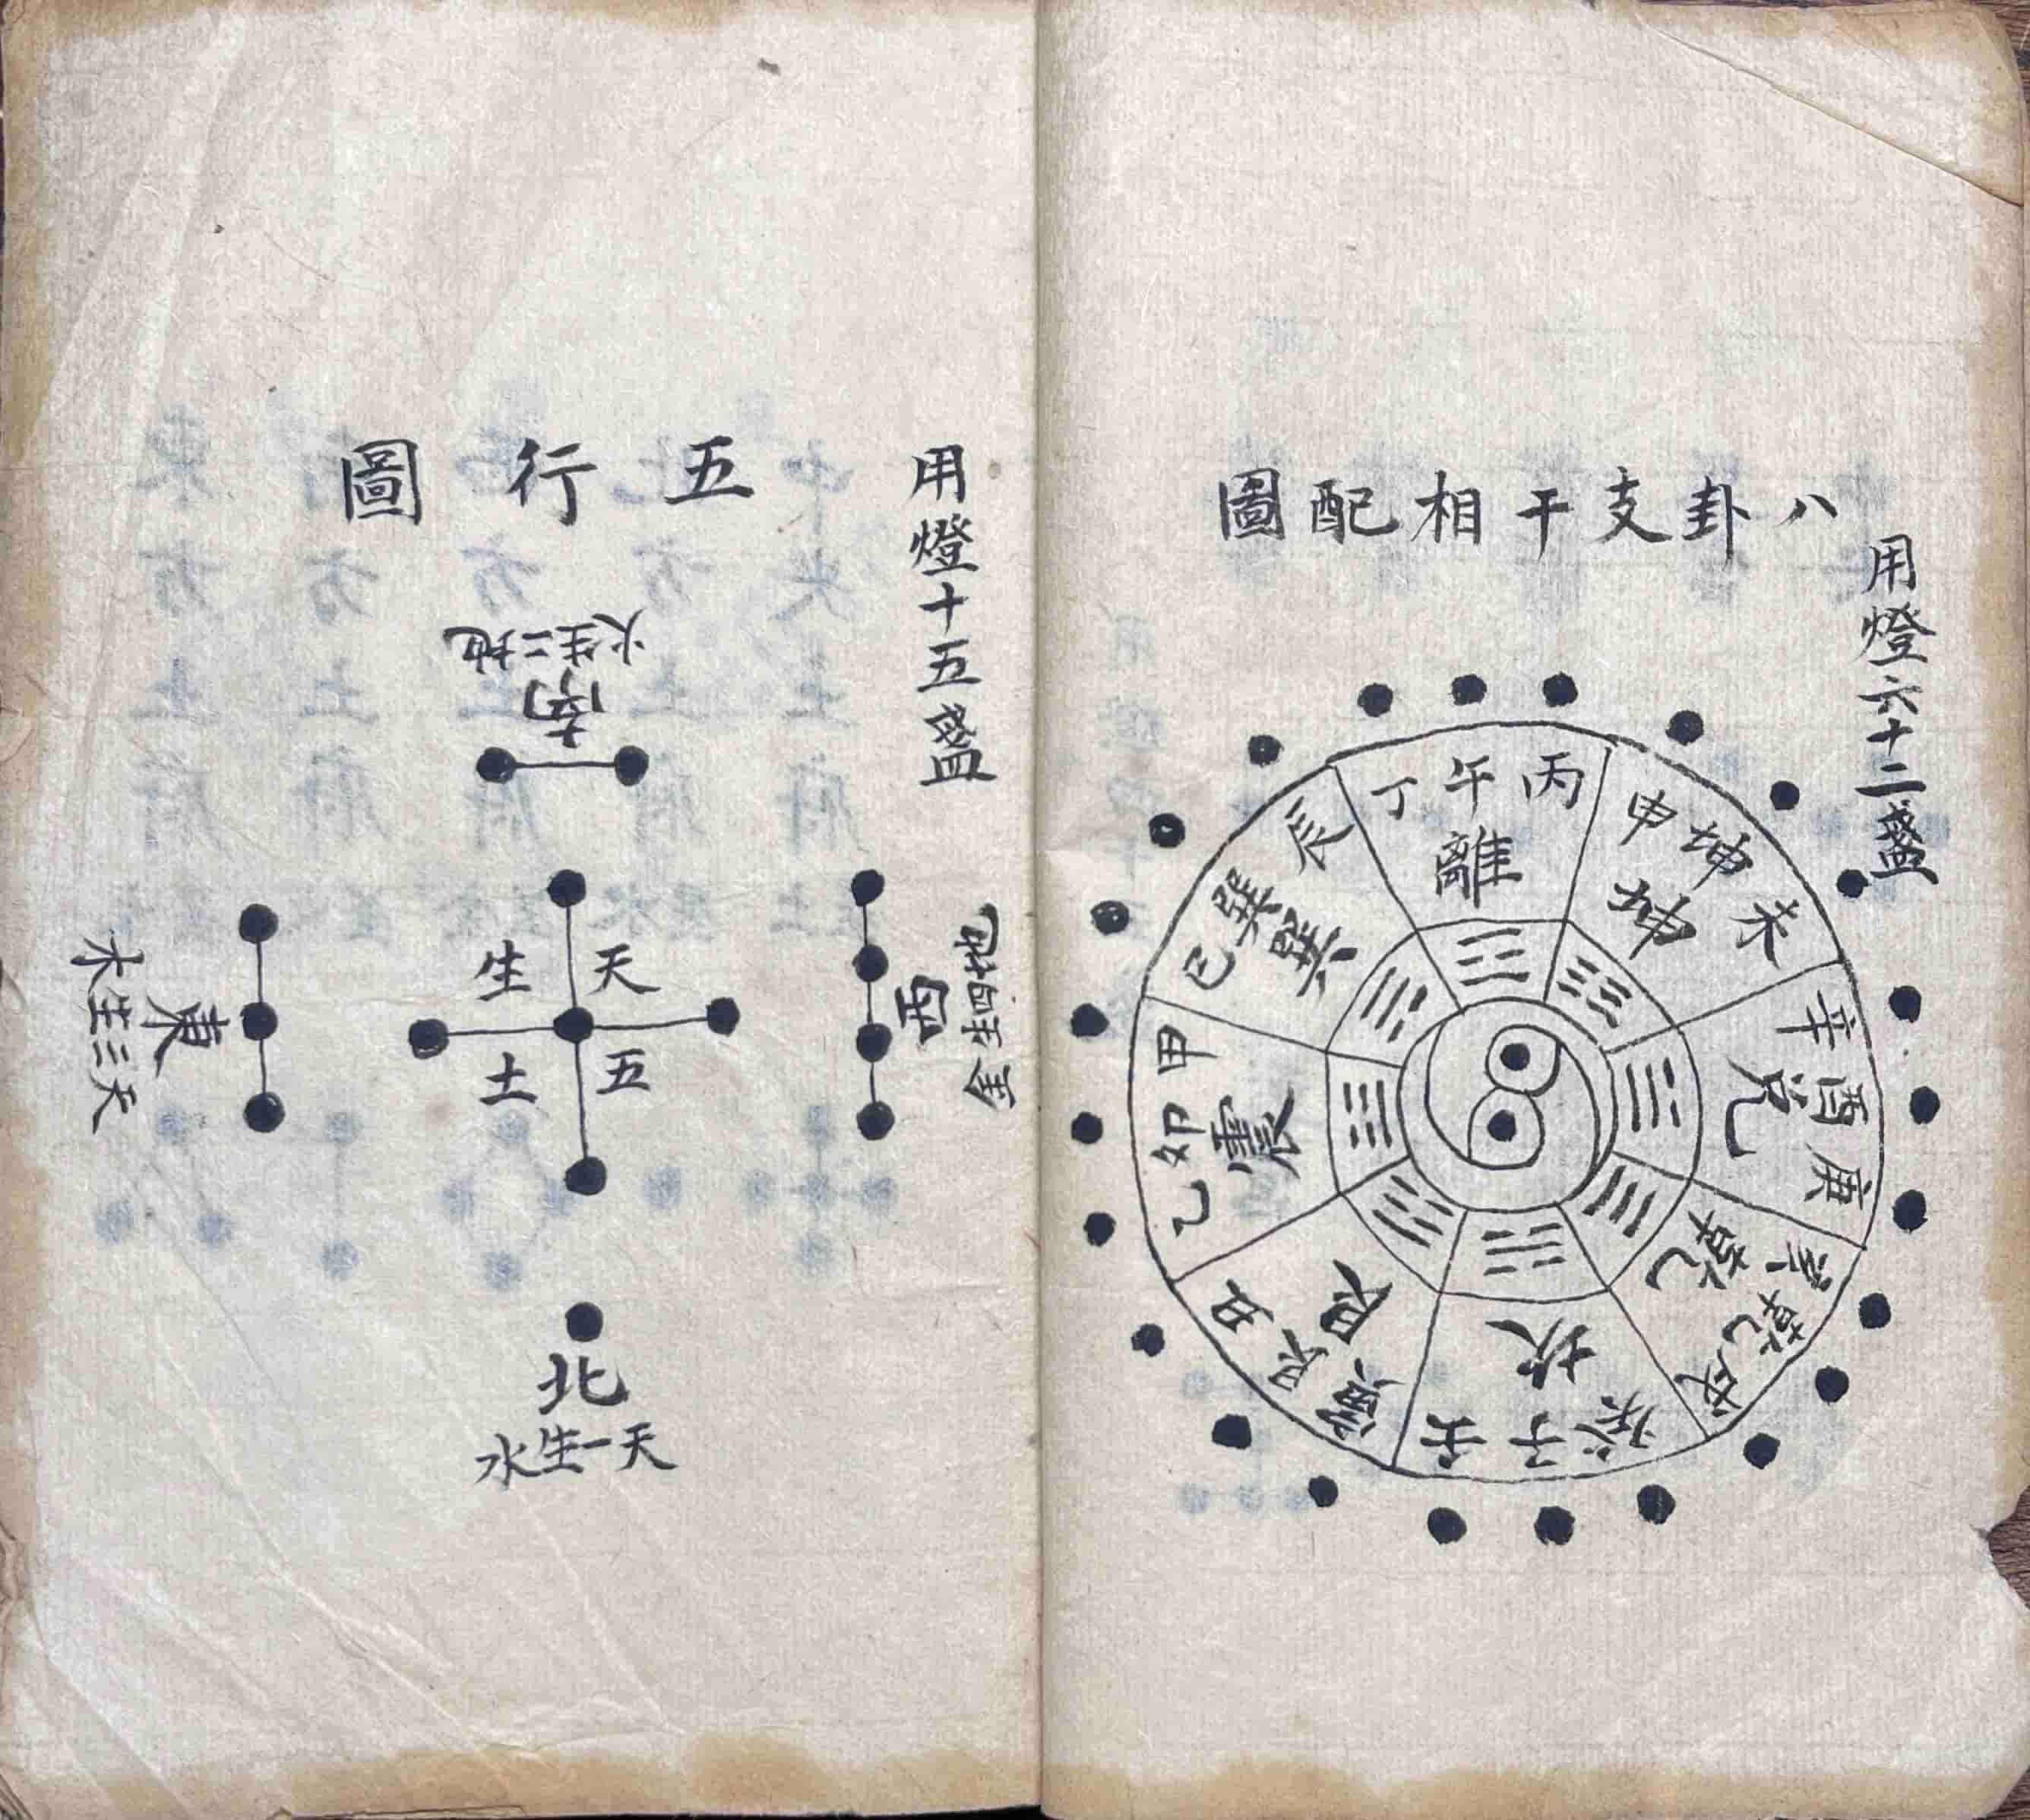 八卦支干相配圖
用燈六十二盞
丙午丁
離
申坤未
坤
辛酉庚
兌
乾
乾
癸子壬
坎
丑艮寅
艮
甲卯乙
震
辰巽巳
巽
用燈十五盞
五行圖
地二生火
南
地四生金
西
天五
生土
東
天三生木
北
天一生水